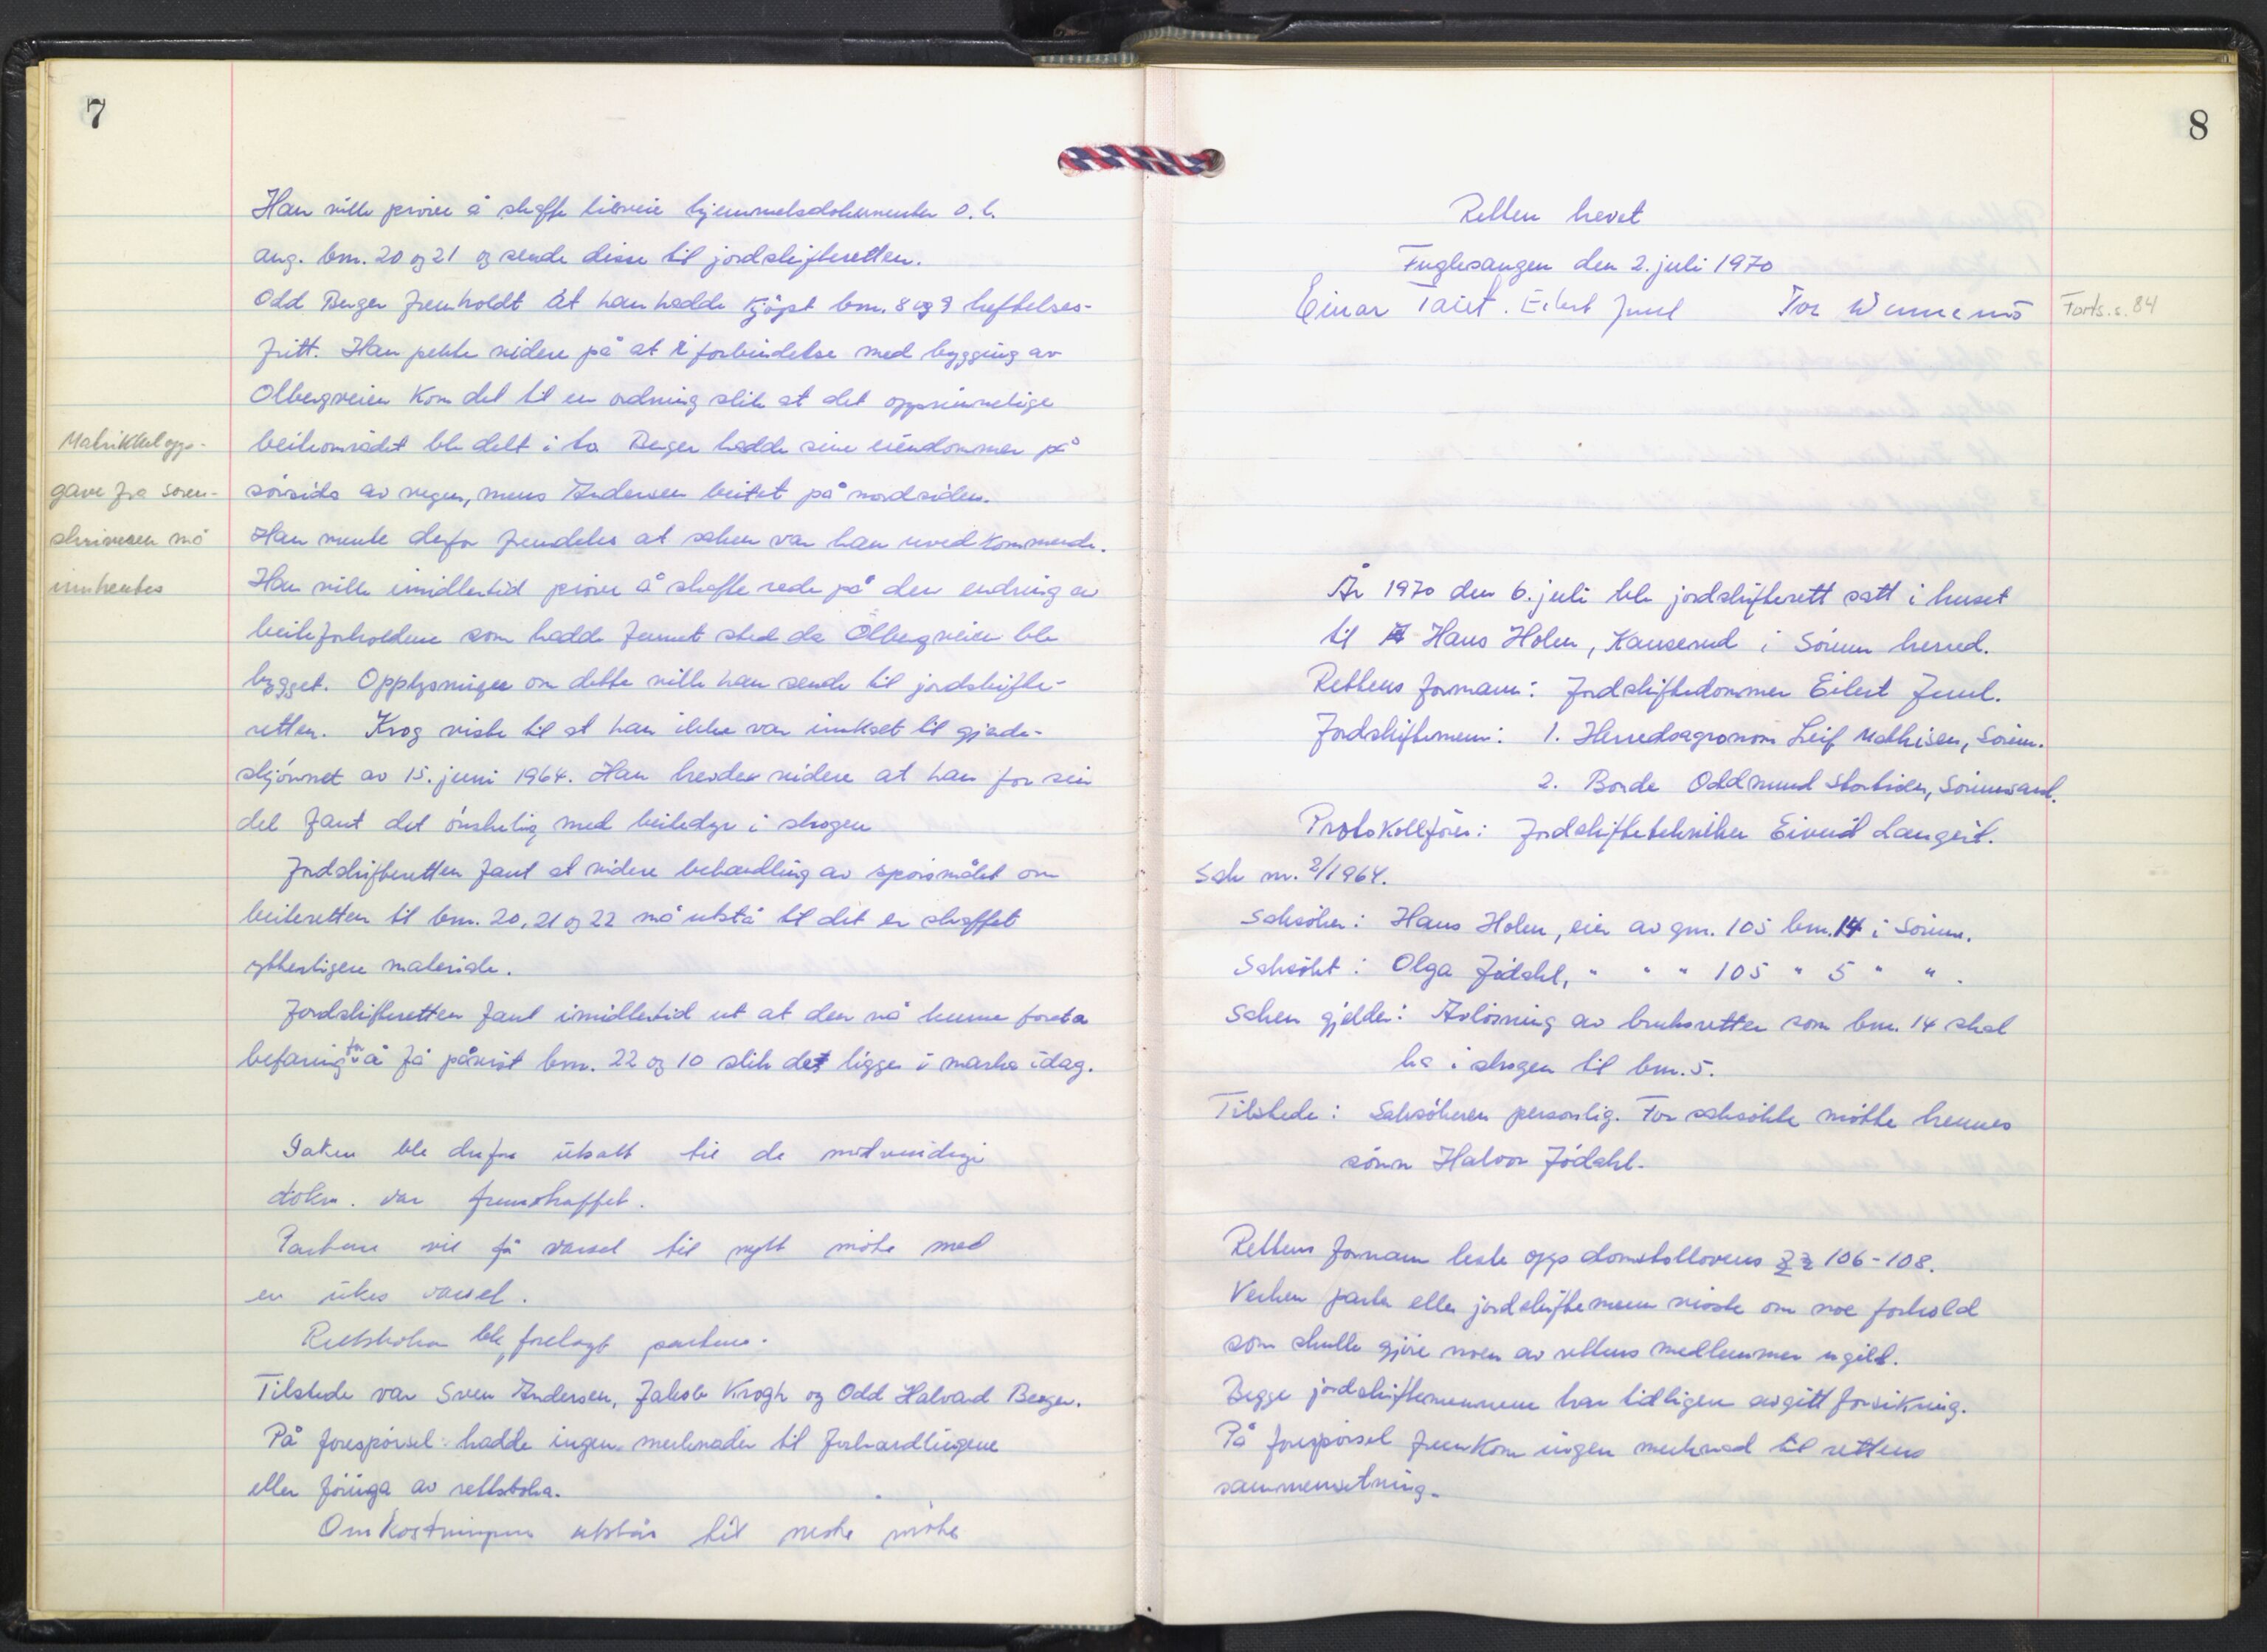 7
Han ville prøve å skaffe tilveie hjemmelsdokumenter o.l.
ang. bnr. 20 og 21 og sende disse til jordskifteretten.
Odd Berger fremholdt at han hadde kjøpt bnr. 8 og 9 heftelses-
fritt. Han pekte videre på at i forbindelse med bygging av
Olbergveien kom det til en ordning slik at det opprinnelige
beiteområdet ble delt i to. Berger hadde sine eiendommer på
sørsida av vegen, mens Andersen beitet på nordsiden.
Han mente derfor fremdeles at saken var han uvedkommende.
Han ville imidlertid prøve å skaffe rede på den endring av
beiteforholdene som hadde funnet sted da Ølbergveien ble
bygget. Opplysninger om dette ville han sende til jordskifte-
retten. Krog viste til at han ikke var innkalt til gjerde-
skjønnet av 15. juni 1964. Han hevder videre at han for sin
del fant det ønskelig med beitedyr i skogen
Jordskifteretten fant at videre behandling av spørsmålet om
beiteretten til bnr. 20, 21 og 22 må utstå til det er skaffet
ytterligere materiale.
Jordskifteretten fant imidlertid ut at den nå kunne foreta
befaring for å få påvist bnr. 22 og 10 slik det ligger i marka idag.
Saken ble derfor utsatt til de nødvendige
dokm. var fremskaffet.
Partene vil få varsel til nytt møte med
en ukes varsel.
Rettsboken ble forelagt partene.
Tilstede var Sven Andersen, Jakob Krogh og Odd Halvard Berger.
På forespørsel hadde ingen merknader til forhandlingene
eller føringa av rettsboka.
Omkostningene utstår til neste møte
Matrikkelopp-
gave fra soren-
skriveren må
innhentes
8
Retten hevet
Fuglesangen den 2. juli 1970
Einar Tøiet. Eilert Juul Tor
Forts. s. 84
År 1970 den 6. juli ble jordskifterett satt i huset
til Hans Holen, Kauserud i Sørum herred.
Rettens formann: Jordskiftedommer Eilert Juul.
Jordskiftemenn: 1. Herredsagronom Leif Mathisen, Sørum.
2. Bonde Oddmund Stortiden, Sørumsand.
Protokollfører: Jordskiftetekniker Eivind Langeit.
Sak nr. 2/1964.
Saksøker: Hans Holen, eier av gnr. 105 bnr. 14 i Sørum.
Saksøkt: Olga Jødahl, " " " 105 " 5 " ".
Saken gjelder: Avløsning av bruksretter som bnr. 14 skal
ha i skogen til bnr. 5.
Tilstede: Saksøkeren personlig. For saksøkte møtte hennes
sønn Halvor Jødahl.
Rettens formann leste opp domstollovens §§ 106-108.
Verken parter eller jordskiftemenn visste om noe forhold
som skulle gjøre noen av rettens medlemmer ugild.
Begge jordskiftemennene har tidligere avgitt forsikring.
På forespørsel fremkom ingen merknad til rettens
sammensetning.